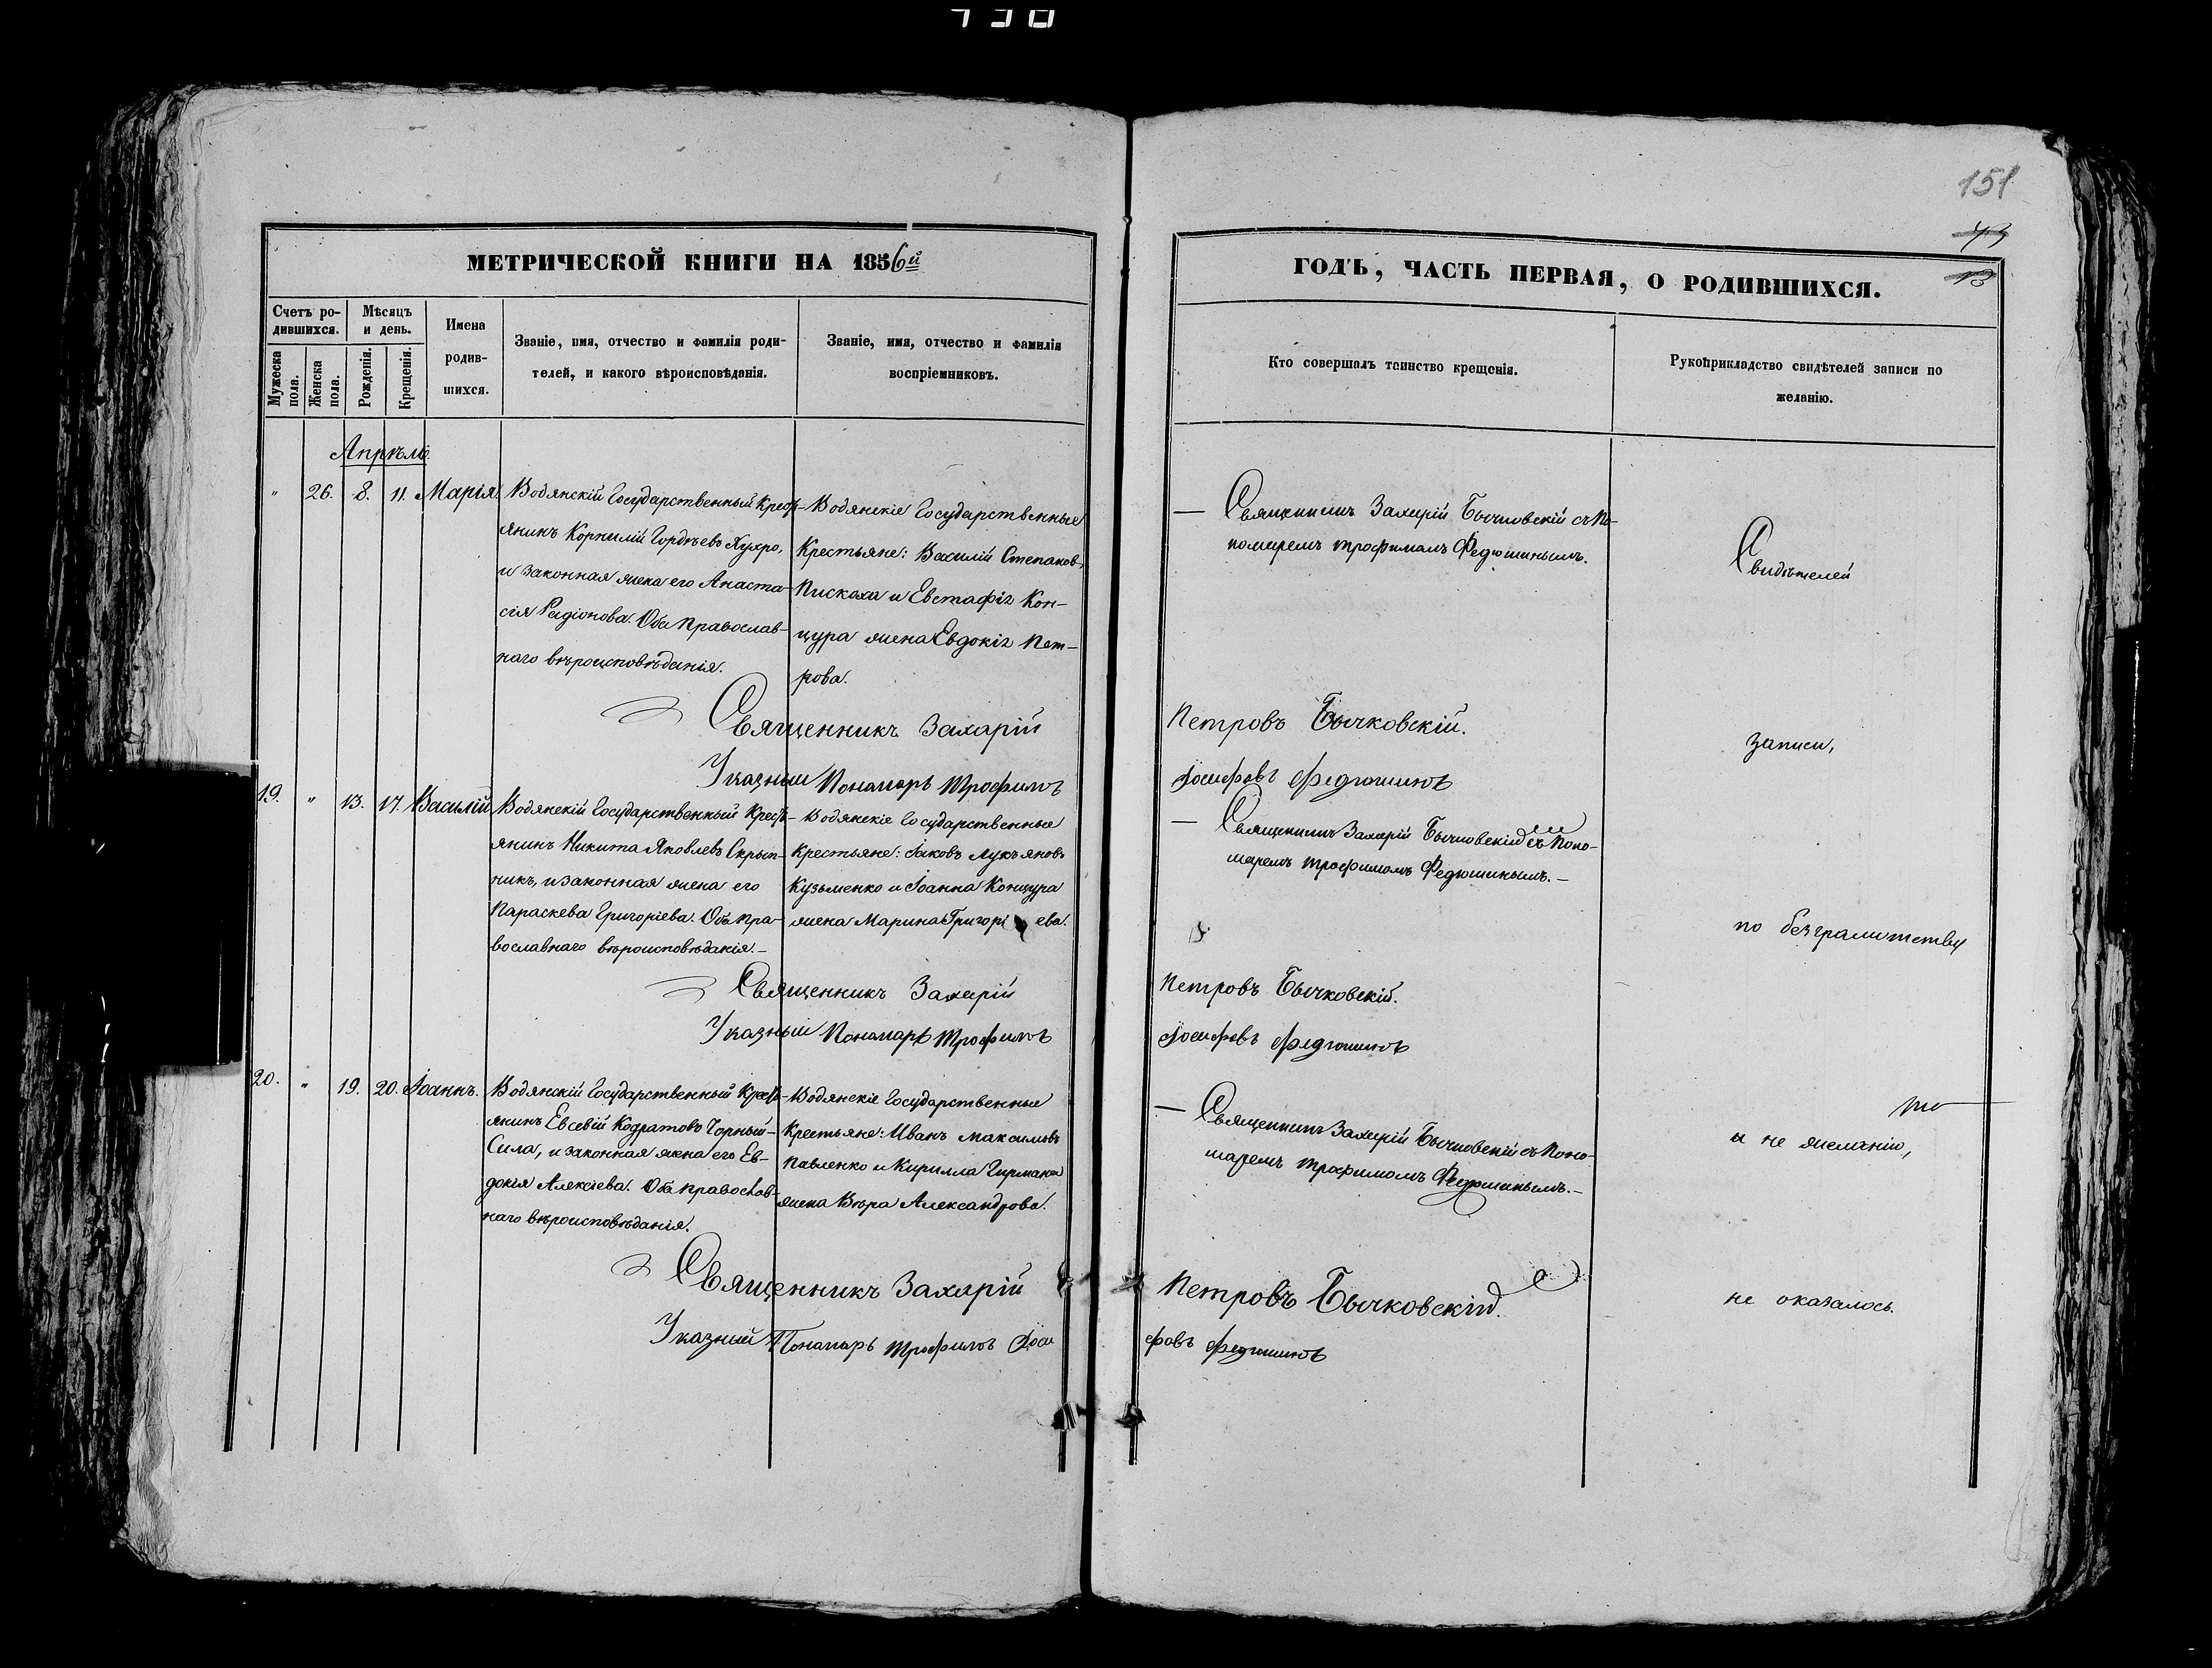 151
73
13
МЕТРИЧЕСКОЙ КНИГИ НА 1856й
ГОДЪ, ЧАСТЬ ПЕРВАЯ, О РОДИВШИХСЯ.
Счетъ ро-
дившихся.
Мужеска пола.
Женска пола.
Мѣсяцъ
и день.
Рожденія.
Крещенія.
Имена
родив-
шихся.
Званіе, имя, отчество и фамилія роди-
телей, и какого вѣроисповѣданія.
Званіе, имя, отчество и фамилія
воспріемниковъ.
Кто совершалъ таинство крещенія.
Рукоприкладство свидѣтелей записи по
желанію.
Апрѣль
" 26. 8. 11. Марія.
Водянскій Государственный Крест-
янинъ Корнилій Гордѣевъ Хухро,
и законная жена его Анаста-
сія Радіонова. Оба православ-
наго вѣроисповѣданія.
Водянскіе Государственные
Крестьяне: Василій Степановъ
Пискоха и Евстафія Кон-
цура жена Евдокія Пет-
рова.
— Священникъ Захарій Бычковскій съ По-
номаремъ Трофимомъ Федюшинымъ.
Свидѣтелей
Священникъ Захарій Петровъ Бычковскій.
записи,
Указный Пономарь Трофимъ Іосифовъ Федюшинъ
19. " 13. 17. Василій
Водянскій Государственный Крест-
янинъ Никита Яковлевъ Скрып-
никъ, и законная жена его
Параскева Григоріева. Оба пра-
вославнаго вѣроисповѣданія.-
Водянскіе Государственные
Крестьяне: Іаковъ Лукьяновъ
Кузьменко и Іоанна Концура
жена Марина Григорі ева.
— Священникъ Захарій Бычковскій съ Поно-
маремъ Трофимомъ Федюшинымъ.—
по безграмотству
Священникъ Захарій Петровъ Бычковскій.
Указный Пономарь Трофимъ Іосифовъ Федюшинъ
20. " 19. 20. Іоаннъ.
Водянскій Государственный Крест-
янинъ Евсевій Кодратовъ Чорный-
Сила, и законная жена его Ев-
докія Алексіева. Оба православ-
наго вѣроисповѣданія.
Водянскіе Государственные
Крестьяне: Иванъ Максимовъ
Павленко и Кирилла Гирмана
жена Вѣра Александрова.
— Священникъ Захарій Бычковскій съ Поно-
маремъ Трофимомъ Федюшинымъ.—
и не желанію,
Священникъ Захарій Петровъ Бычковскій.
не оказалось.
Указный Пономарь Трофимъ Іосифовъ Федюшинъ